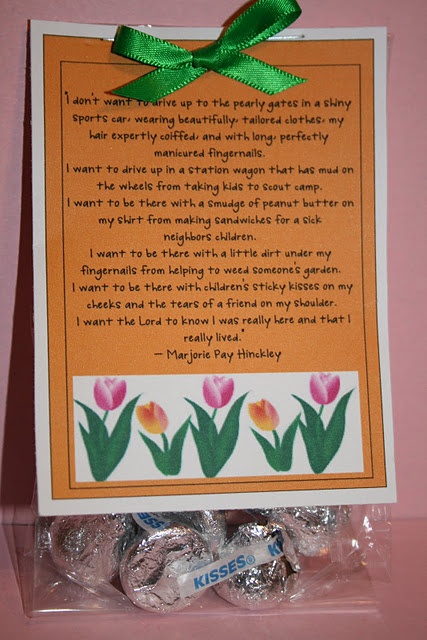 "I don't want to drive up to the pearly gates in a shiny
sports car, wearing beautifully, tailored clothes, my
hair expertly coiffed, and with long, perfectly
manicured fingernails.
I want to drive up in a station wagon that has mud on
the wheels from taking kids to scout camp.
I want to be there with a smudge of peanut butter on
my shirt from making sandwiches for a sick
neighbors children.
I want to be there with a little dirt under my
fingernails from helping to weed someone's garden.
I want to be there with children's sticky kisses on my
cheeks and the tears of a friend on my shoulder.
I want the Lord to know I was really here and that I
really lived."
— Marjorie Pay Hinckley
KISSES
KISSES